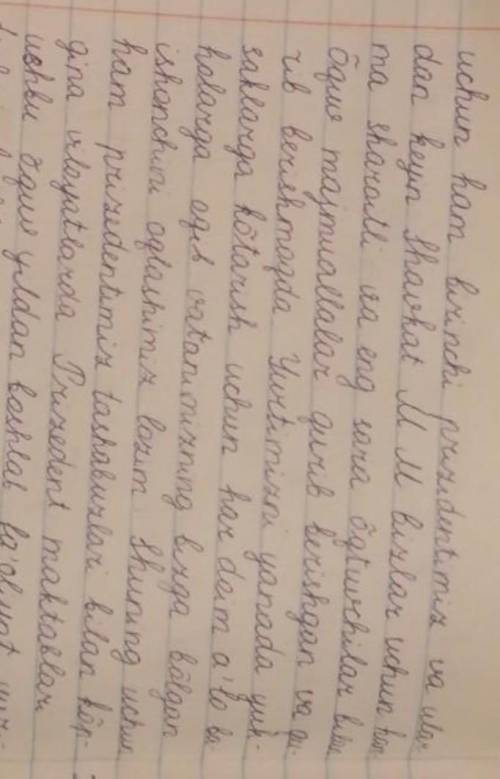 uchun ham birinchi prizidentimiz va ular-
dan keyn Shavkat M M bizlar uchun ham
ma sharoitli va eng sara õqituvchilar bilan
õquv majmuallalar qurib berishgan va qu-
rib berishmoqda Yurtimizni yanada yuk-
saklarga kõtarish uchun har doim a'lo ba-
holarga oqib vatanimizning bizga bõlgan
ishonchini oqlashimiz lozim Shuning uchun
ham prizedentimiz tashabuzlari bilan kõp-
gina viloyatlarda Prizedent maktablar
ushbu õquv yildan boshlab fa'oliyat yur-